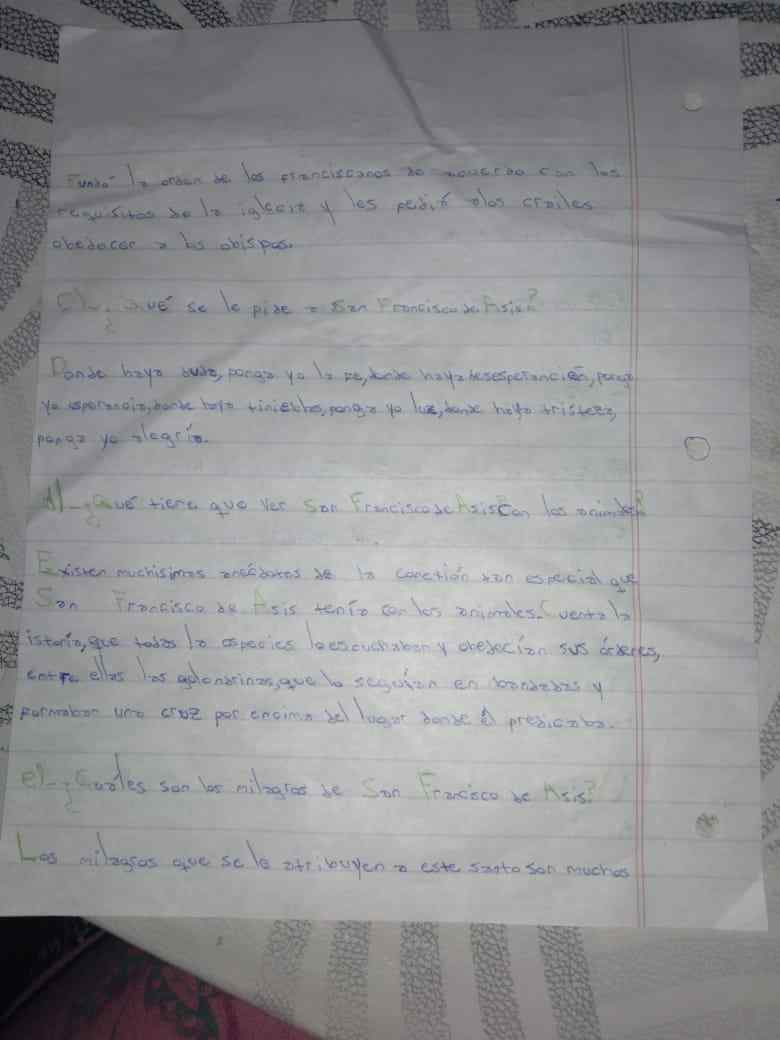 Fundó la orden de los franciscanos de acuerdo con los
requisitos de la iglesia y les pedirá alos frailes
obedecer a los obispos.
C)-¿Qué se le pide a San Francisco de Asis?
Donde haya duda, ponga yo la fe, donde haya desesperanción, ponga
yo esperanza, donde haya tinieblas, ponga yo luz, donde haya tristeza,
ponga yo alegría.
d)-¿Qué tiene que ver San Francisco de Asis con los animales?
Existen muchisimas anécdotas de la conexión tan especial que
San Francisco de Asis tenía con los animales. Cuenta la
istoria, que todas la especies lo escuchaban y obedecían sus órdenes,
entre ellas las golondrinas, que lo seguían en bandadas y
formaban una cruz por encima del lugar donde él predicaba.
e)-¿Cuales son los milagros de San Francisco de Asis?
Los milagros que se le atribuyen a este santo son muchos